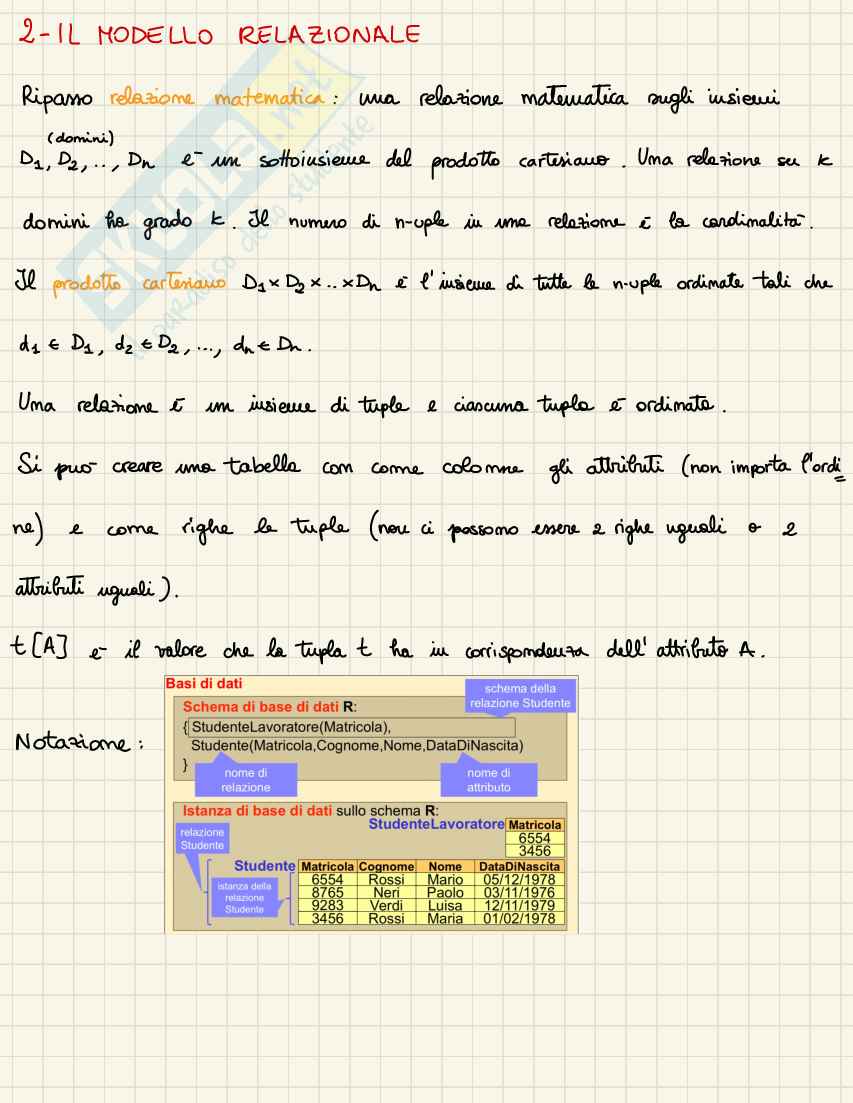 2-IL MODELLO RELAZIONALE
Ripasso relazione matematica: una relazione matematica sugli insiemi
(domini)
D1, D2, .., Dn è un sottoinsieme del prodotto cartesiano. Una relazione su k
domini ha grado k. Il numero di n-uple in una relazione è la cardinalità.
Il prodotto cartesiano D1 x D2 x .. x Dn è l'insieme di tutte le n-uple ordinate tali che
d1 ∈ D1, d2 ∈ D2, ..., dn ∈ Dn.
Una relazione è un insieme di tuple e ciascuna tupla è ordinata.
Si può creare una tabella con come colonne gli attributi (non importa l'ordi
ne) e come righe le tuple (non ci possono essere 2 righe uguali o 2
attributi uguali).
t[A] è il valore che la tupla t ha in corrispondenza dell'attributo A.
Notazione:
Basi di dati
schema della
relazione Studente
Schema di base di dati R:
{ StudenteLavoratore(Matricola),
Studente(Matricola,Cognome,Nome,DataDiNascita)
}
nome di
relazione
nome di
attributo
Istanza di base di dati sullo schema R:
StudenteLavoratore Matricola
6554
3456
relazione
Studente
Studente Matricola Cognome Nome DataDiNascita
6554 Rossi Mario 05/12/1978
8765 Neri Paolo 03/11/1976
9283 Verdi Luisa 12/11/1979
3456 Rossi Maria 01/02/1978
istanza della
relazione
Studente
SKUOLA.net
il paradiso dello studente